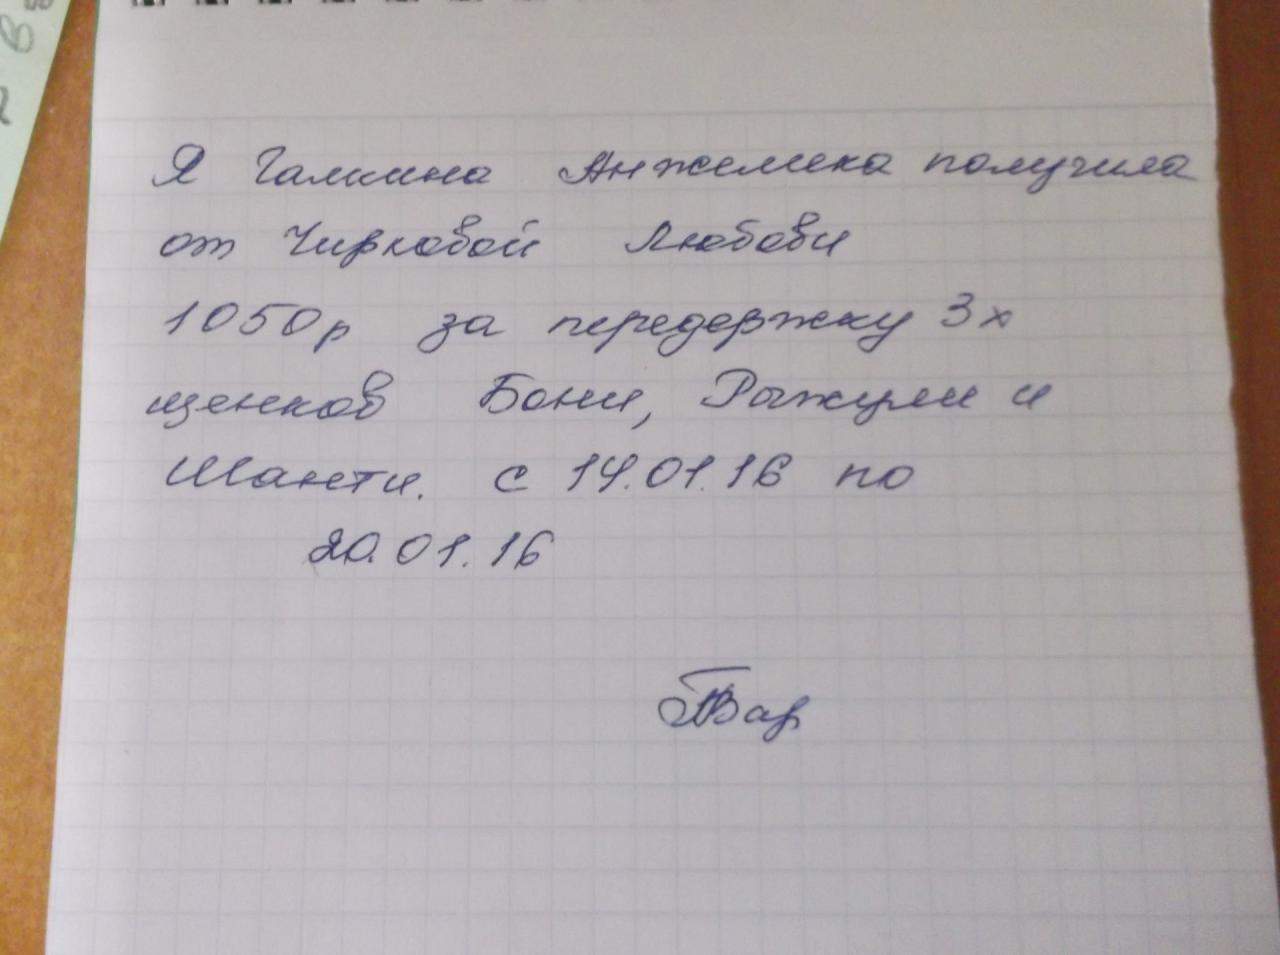 Я Галкина Анжелика получила
от Чирковой Любови
1050р за передержку 3х
щенков Бони, Рыжули и
Шанти. с 14.01.16 по
20.01.16